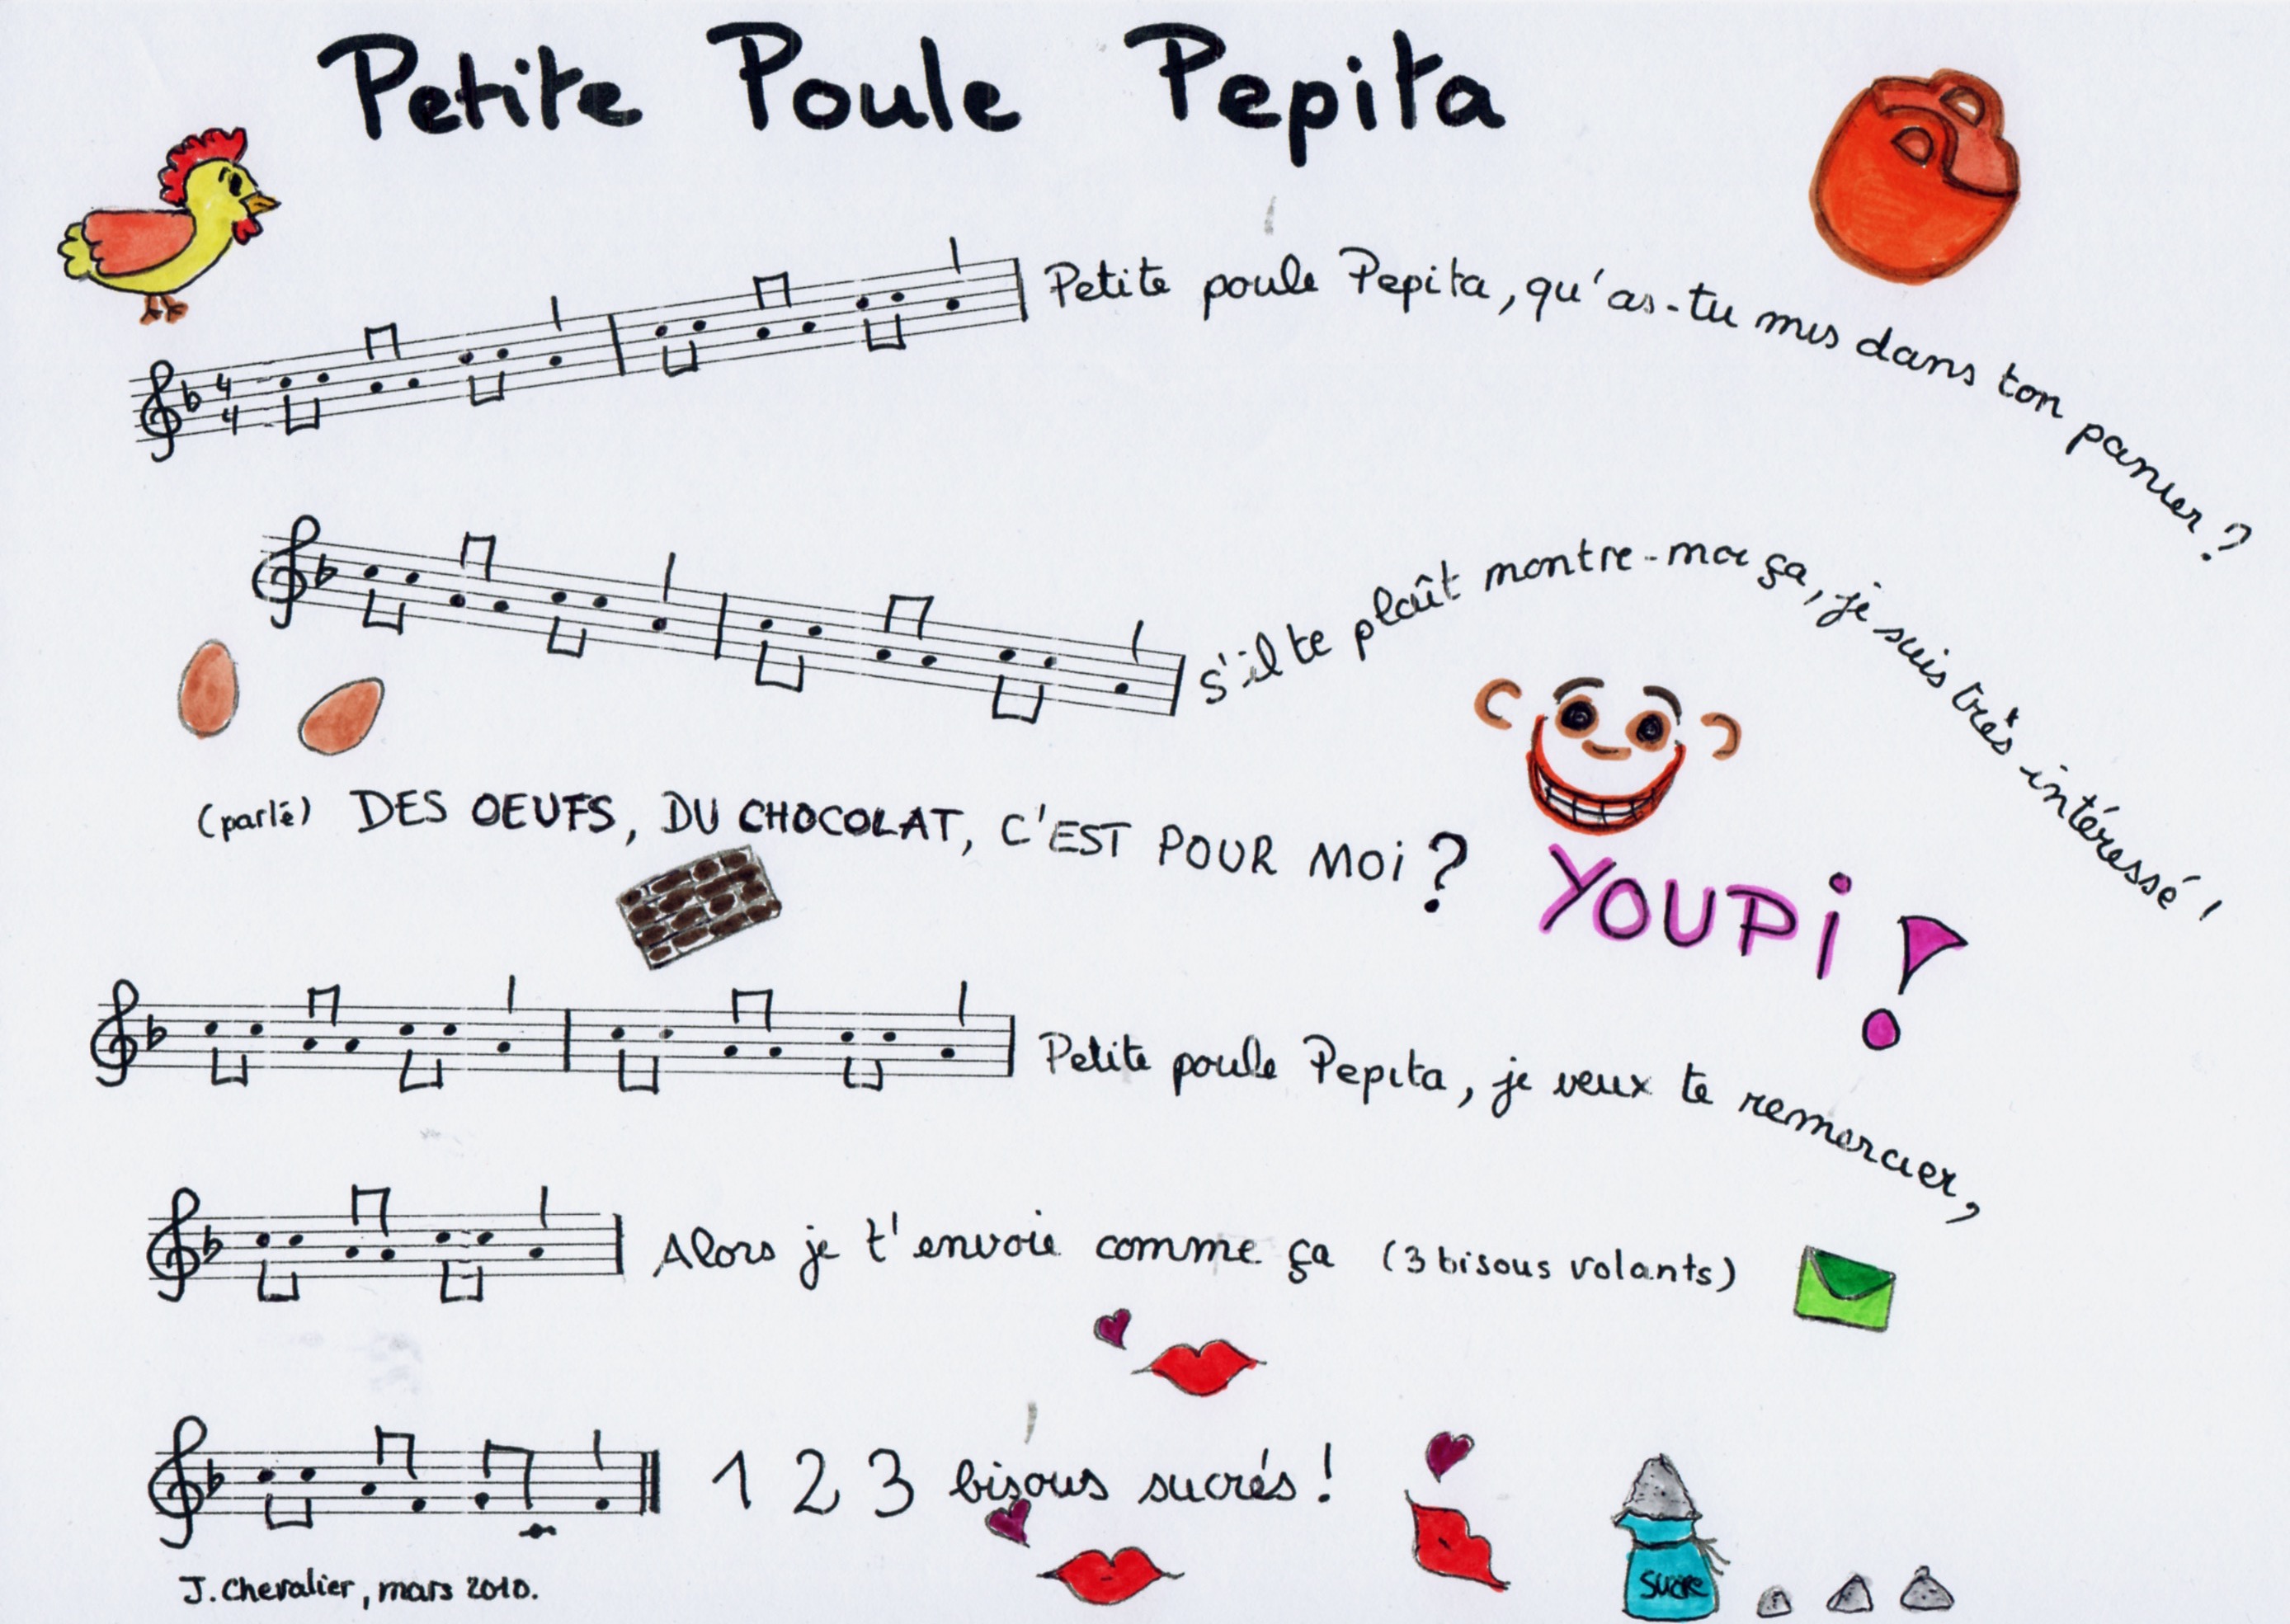 Petite Poule Pepita
4
4
Petite poule Pepita, qu'as-tu mis dans ton panier ?
s'il te plaît montre-moi ça, je suis très intéressé !
(parlé) DES OEUFS, DU CHOCOLAT, C'EST POUR MOI ?
YOUPI !
Petite poule Pepita, je veux te remercier,
Alors je t'envoie comme ça (3 bisous volants)
1 2 3 bisous sucrés !
sucre
J. Chevalier, mars 2010.